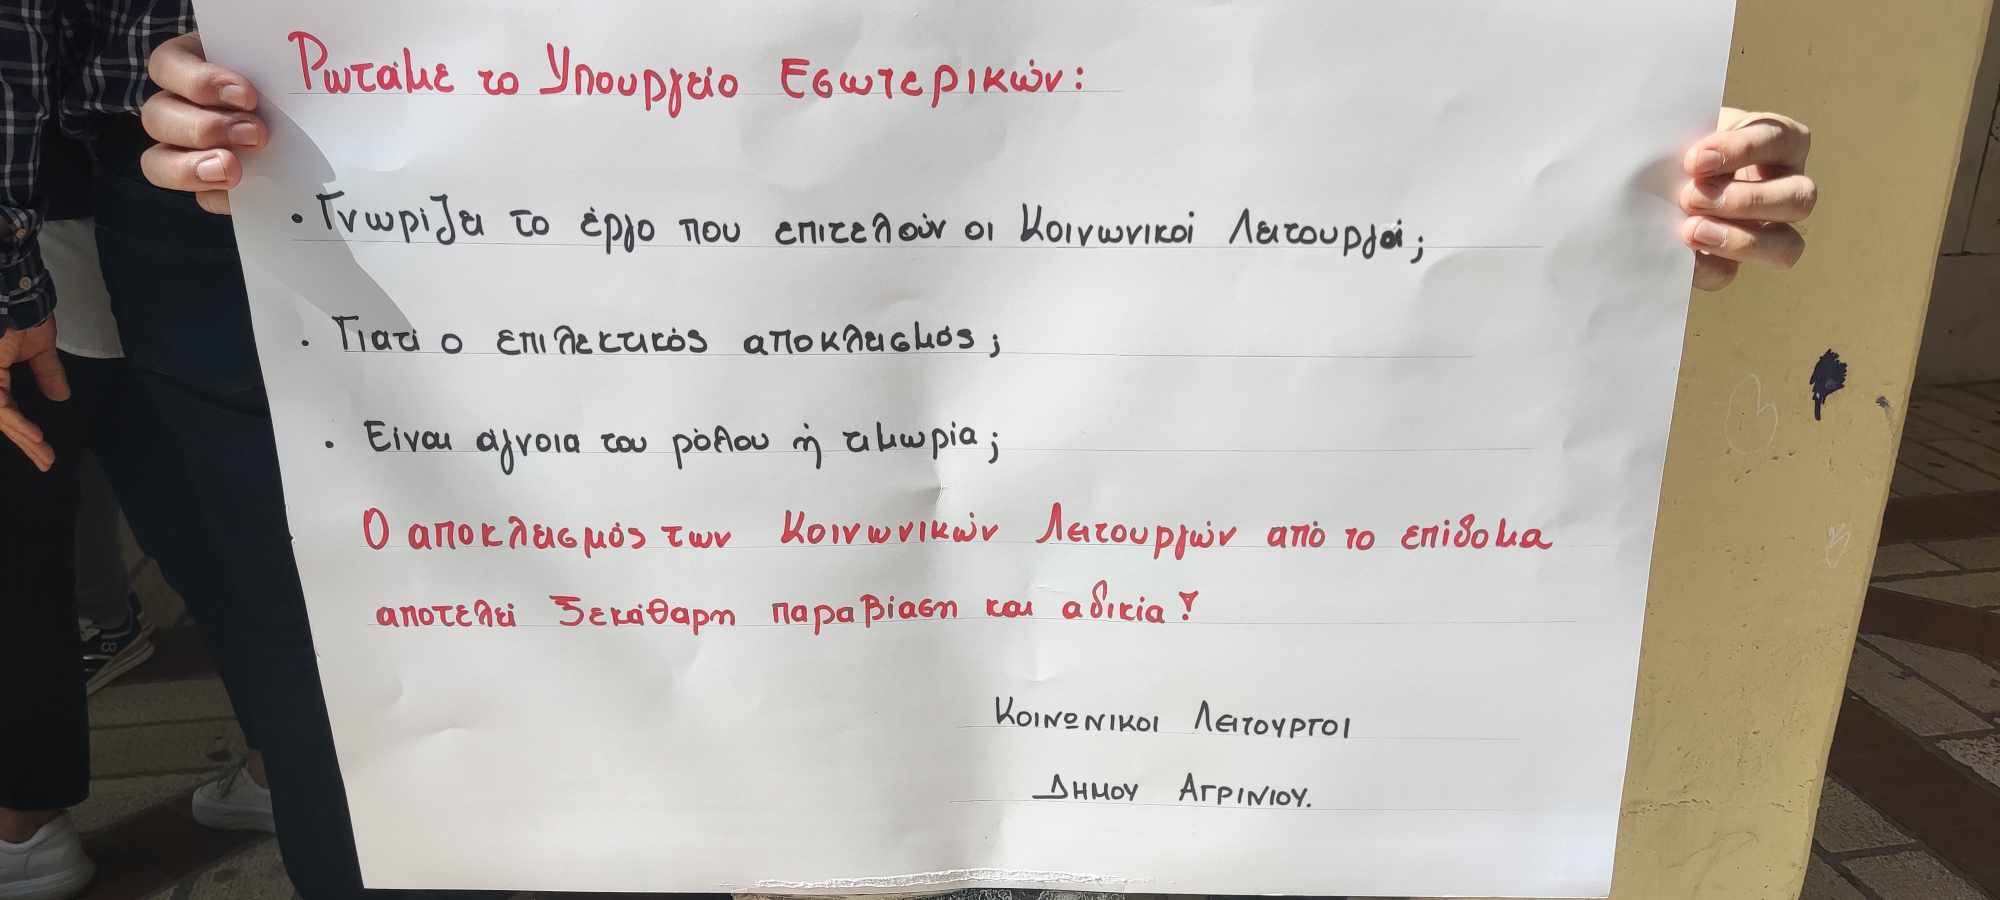 Ρωτάμε το Υπουργείο Εσωτερικών:
• Γνωρίζει το έργο που επιτελούν οι Κοινωνικοί Λειτουργοί;
• Γιατί ο επιλεκτικός αποκλεισμός;
• Είναι άγνοια του ρόλου ή τιμωρία;
Ο αποκλεισμός των Κοινωνικών Λειτουργών από το επίδομα
αποτελεί ξεκάθαρη παραβίαση και αδικία!
ΚΟΙΝΩΝΙΚΟΙ ΛΕΙΤΟΥΡΓΟΙ
ΔΗΜΟΥ ΑΓΡΙΝΙΟΥ.